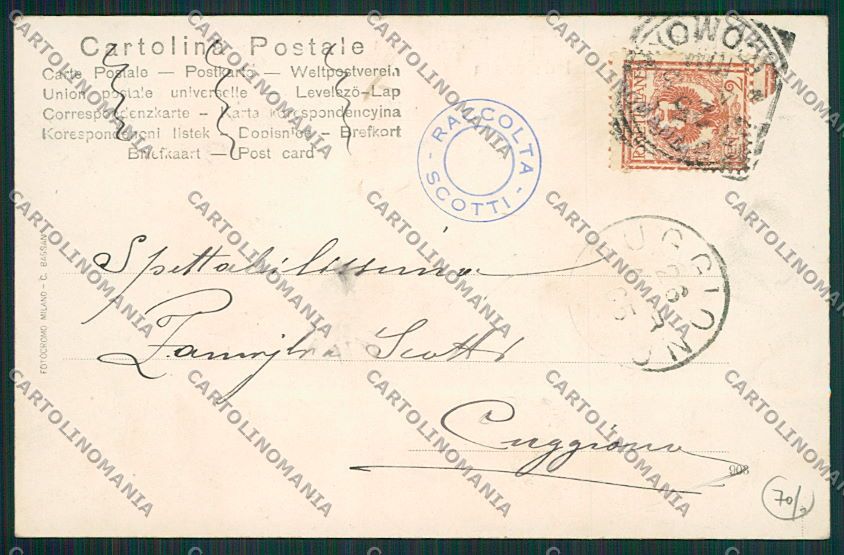 Cartolina Postale
Carte Postale — Postkarte — Weltpostverein
Union postale universelle — Levelező-Lap
Correspondenzkarte — Karta korespondencyina
Korespondencni listek — Dopisnice — Brefkort
Briefkaart — Post card
RACCOLTA
- SCOTTI -
COMO
CUGGIONO
Spettabilissima
Famiglia Scotti
Cuggiono
FOTOCROMO MILANO - C. BASSANI
908
70/
CARTOLINOMANIA